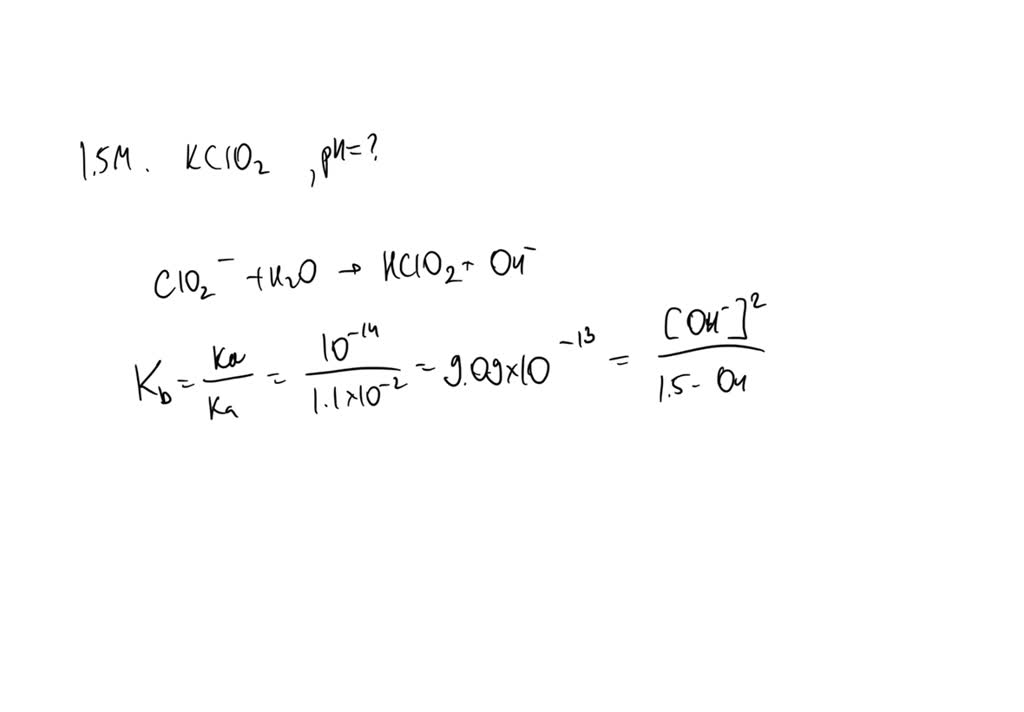 1.5M. KClO₂, pH=?
ClO₂⁻ + H₂O → HClO₂ + OH⁻
K_b = Ka/Ka = 10⁻¹⁴/1.1×10⁻² = 9.09×10⁻¹³ = [OH⁻]²/1.5 - OH